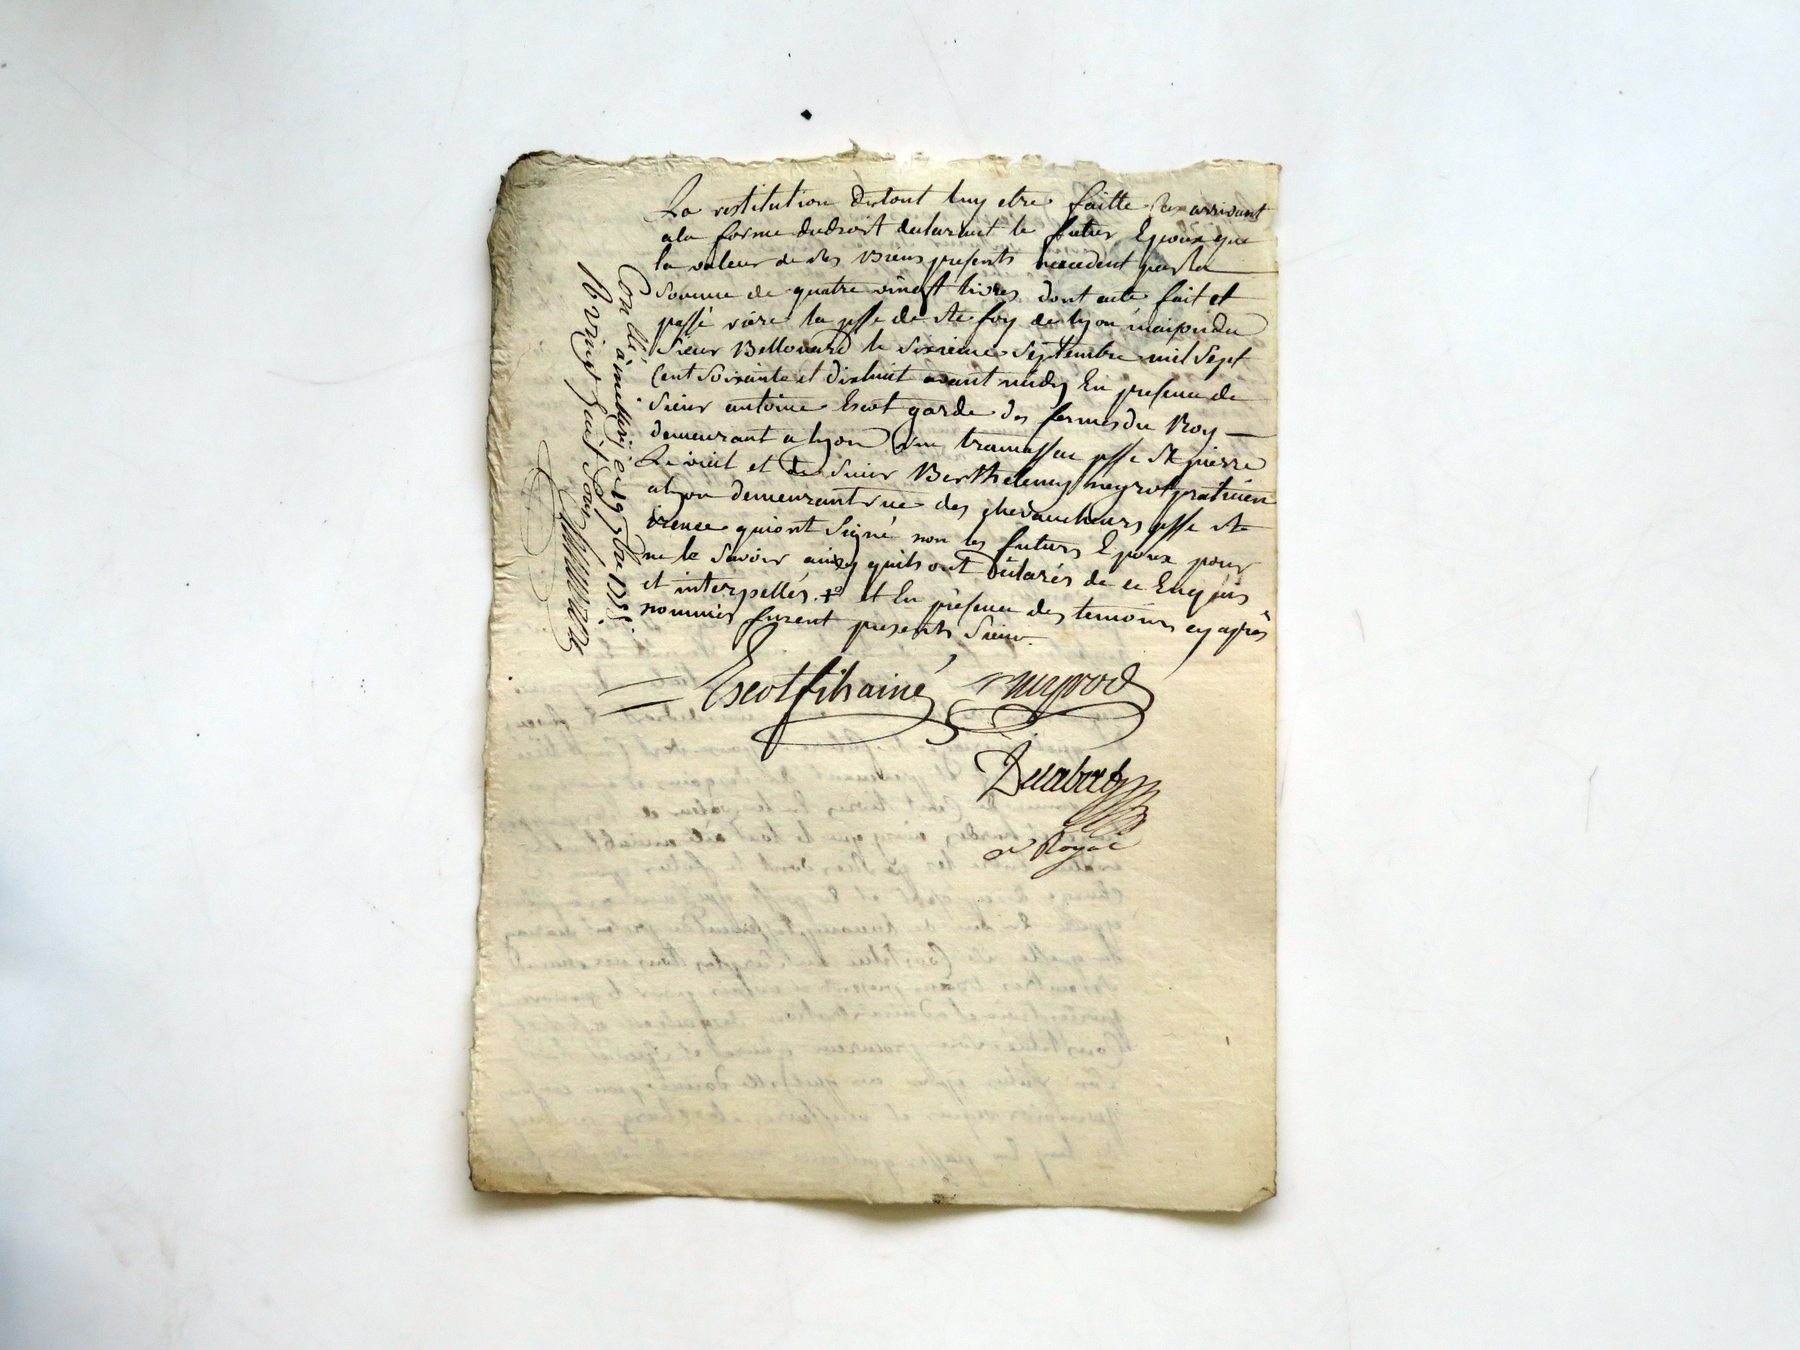 La restitution dutout luy etre faitte Cas arrivant
ala forme dudroit declarant le futur Epoux que
la valeur de des Biens presents nexcedent pas la
Somme de quatre vingt livres dont acte fait et
passé riere la psse de ste foy de lyon maison du
Sieur Bellouard le sixieme Septembre mil Sept
Cent Soixante et dixhuit avant midy En presence de
Sieur antoine Escot garde des fermes du Roy
demeurant a lyon rue tramassac psse st pierre
Le vieil et de Sieur Berthelemy neyrod praticien
alyon demeurant rue des chevaucheurs psse ste
irenee quiont Signé non les futurs Epoux pour
ne le Savoir ainsy quils ont déclarés de ce Enquis
et interpellés. + et En présence des temoins cy après
nommés furent presents Sieur
Escot fils ainé neyrod
Delaboré
N Royal
Con llé à 19 7bre 1778.
R vingt huit sous